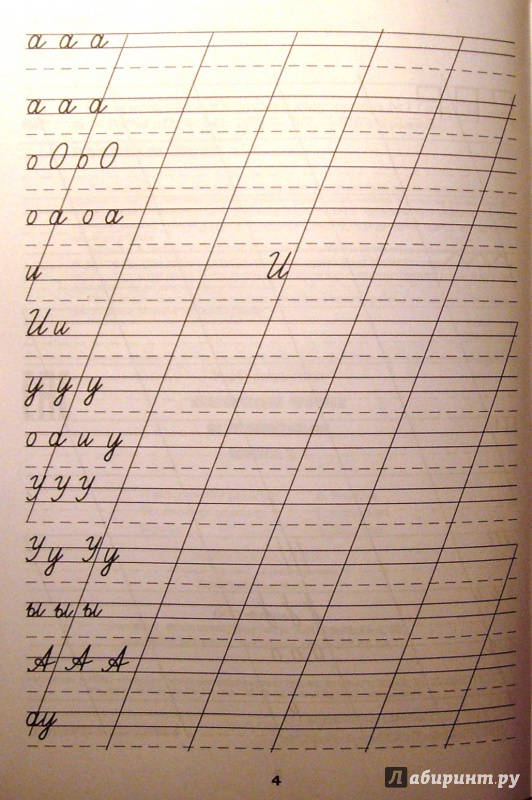 а а а
а а а
о О о О
о а о а
и И
И и
у у у
о а и у
У У У
У у У у
ы ы ы
А А А
ау
4
Лабиринт.ру